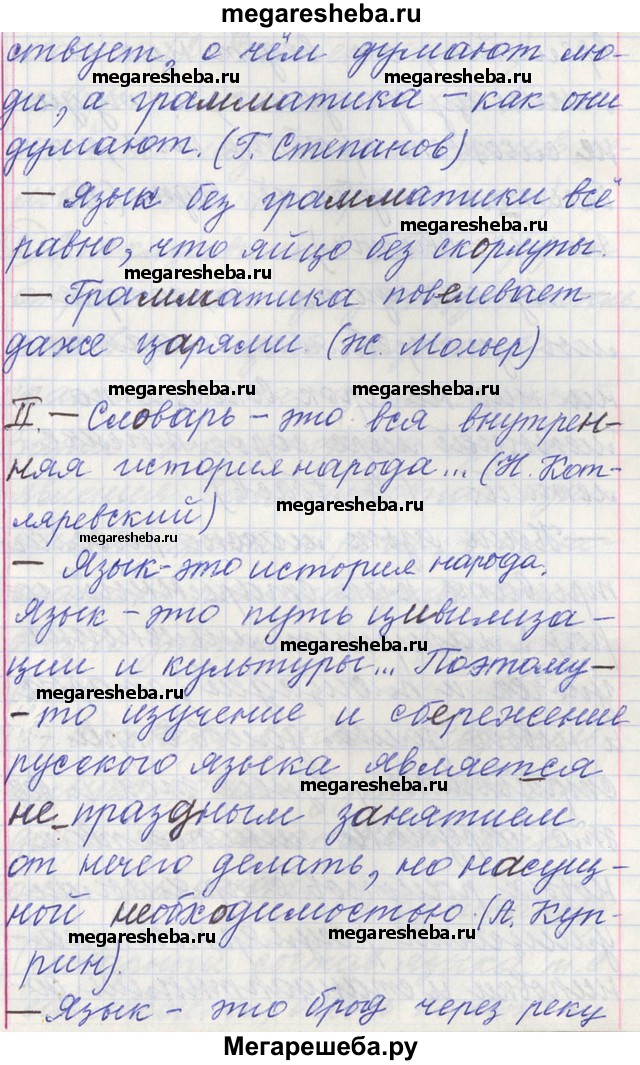 megaresheba.ru
ствует, о чём думают лю-
megaresheba.ru megaresheba.ru
ди, а грамматика – как они
думают. (Г. Степанов)
megaresheba.ru
– Язык без грамматики всё
megaresheba.ru
равно, что яйцо без скорлупы.
megaresheba.ru
– Грамматика повелевает
даже царями. (Ж. Мольер)
megaresheba.ru megaresheba.ru
II. – Словарь – это вся внутрен-
няя история народа... (Н. Кот-
megaresheba.ru
ляревский)
megaresheba.ru
– Язык – это история народа.
Язык – это путь цивилиза-
megaresheba.ru
ции и культуры... Поэтому-
megaresheba.ru
-то изучение и сбережение
русского языка является
megaresheba.ru
не праздным занятием
от нечего делать, но насущ-
ной необходимостью (А. Куп-
megaresheba.ru megaresheba.ru
рин).
– Язык – это брод через реку
Мегарешеба.ру